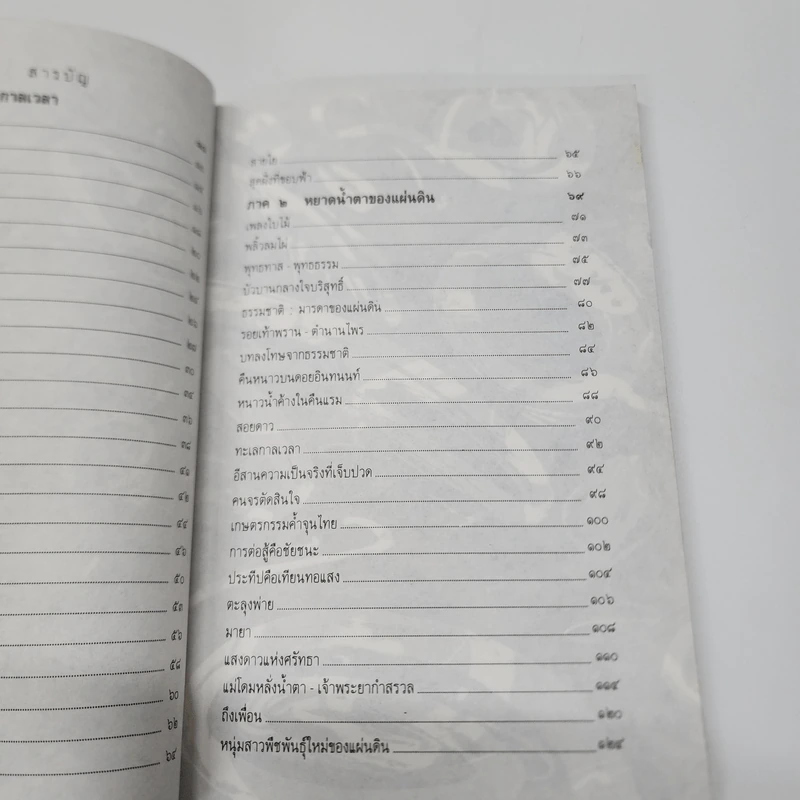 สารบัญ
กาลเวลา
๑๘
๒๐
๒๔
๒๖
๒๗
๓๐
๓๔
๓๖
๓๘
๔๑
๔๒
๔๔
๔๖
๕๐
๕๓
๕๖
๕๘
๖๐
๖๒
๖๔
สายใย ๖๕
สุดฝั่งที่ขอบฟ้า ๖๖
ภาค ๒ หยาดน้ำตาของแผ่นดิน ๖๙
เพลงใบไม้ ๗๑
พลิ้วลมไผ่ ๗๓
พุทธทาส - พุทธธรรม ๗๕
บัวบานกลางใจบริสุทธิ์ ๗๗
ธรรมชาติ : มารดาของแผ่นดิน ๘๐
รอยเท้าพราน - ตำนานไพร ๘๒
บทลงโทษจากธรรมชาติ ๘๔
คืนหนาวบนดอยอินทนนท์ ๘๖
หนาวน้ำค้างในคืนแรม ๘๘
สอยดาว ๙๐
ทะเลกาลเวลา ๙๒
อีสานความเป็นจริงที่เจ็บปวด ๙๔
คนจรตัดสินใจ ๙๘
เกษตรกรรมค้ำจุนไทย ๑๐๐
การต่อสู้คือชัยชนะ ๑๐๒
ประทีปคือเทียนทอแสง ๑๐๔
ตะลุงพ่าย ๑๐๖
มายา ๑๐๘
แสงดาวแห่งศรัทธา ๑๑๐
แม่โดมหลั่งน้ำตา - เจ้าพระยากำสรวล ๑๑๔
ถึงเพื่อน ๑๒๐
หนุ่มสาวพืชพันธุ์ใหม่ของแผ่นดิน ๑๒๔